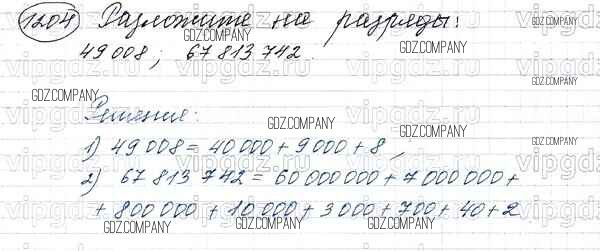 1204 Разложите на разряды:
49 008; 67 813 742.
Решение:
1) 49 008 = 40 000 + 9 000 + 8,
2) 67 813 742 = 60 000 000 + 7 000 000 +
+ 800 000 + 10 000 + 3 000 + 700 + 40 + 2